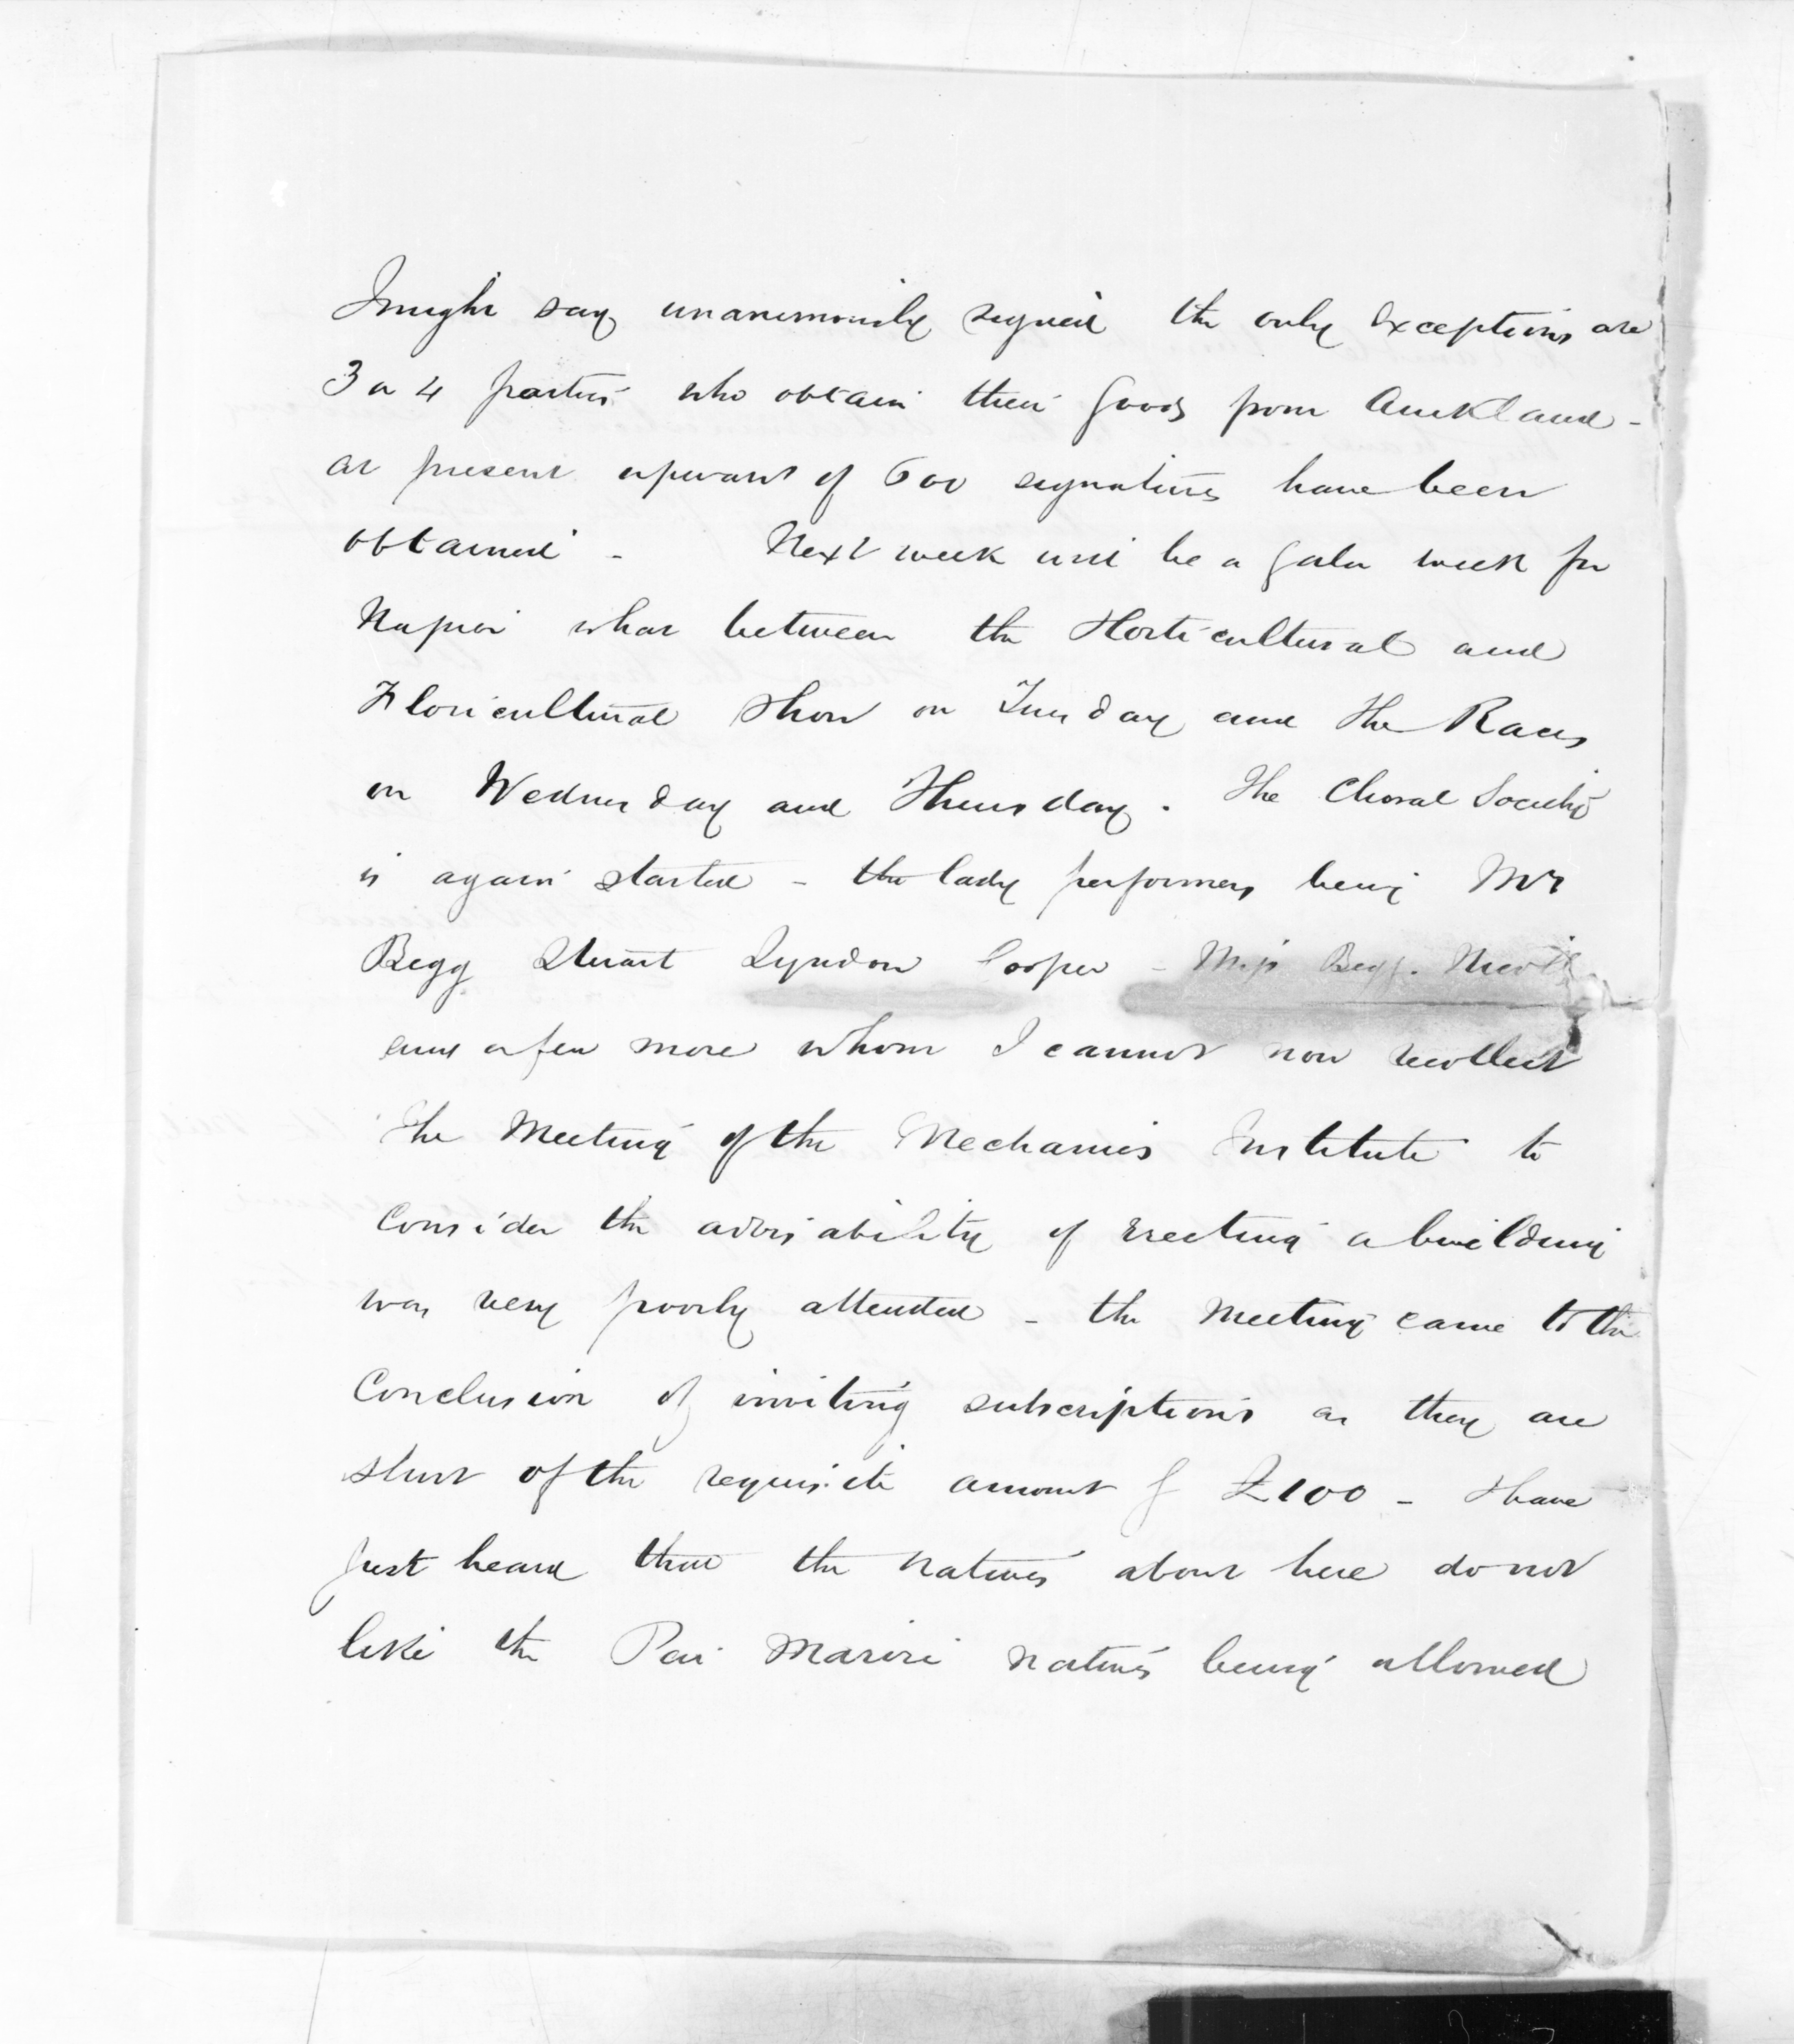 I might say unanimously signed the only exceptions are
3 or 4 parties who obtain their goods from Auckland -
at present upwards of 600 signatures have been
obtained - Next week will be a gala week for
Napier what between the Horticultural and
Floricultural Show on Tuesday and the Races
on Wednesday and Thursday. The Choral Society
is again started - the lady performers being Mrs
Begg Stuart Lyndon Cooper - Miss Begg.
and a few more whom I cannot now recollect
The Meeting of the Mechanics Institute to
Consider the advisability of erecting a building
was very poorly attended - the Meeting came to the
Conclusion of inviting subscriptions as they are
short of the requisite amount of £100 - I have
just heard that the natives about here do not
like the Pai Marire natives being allowed